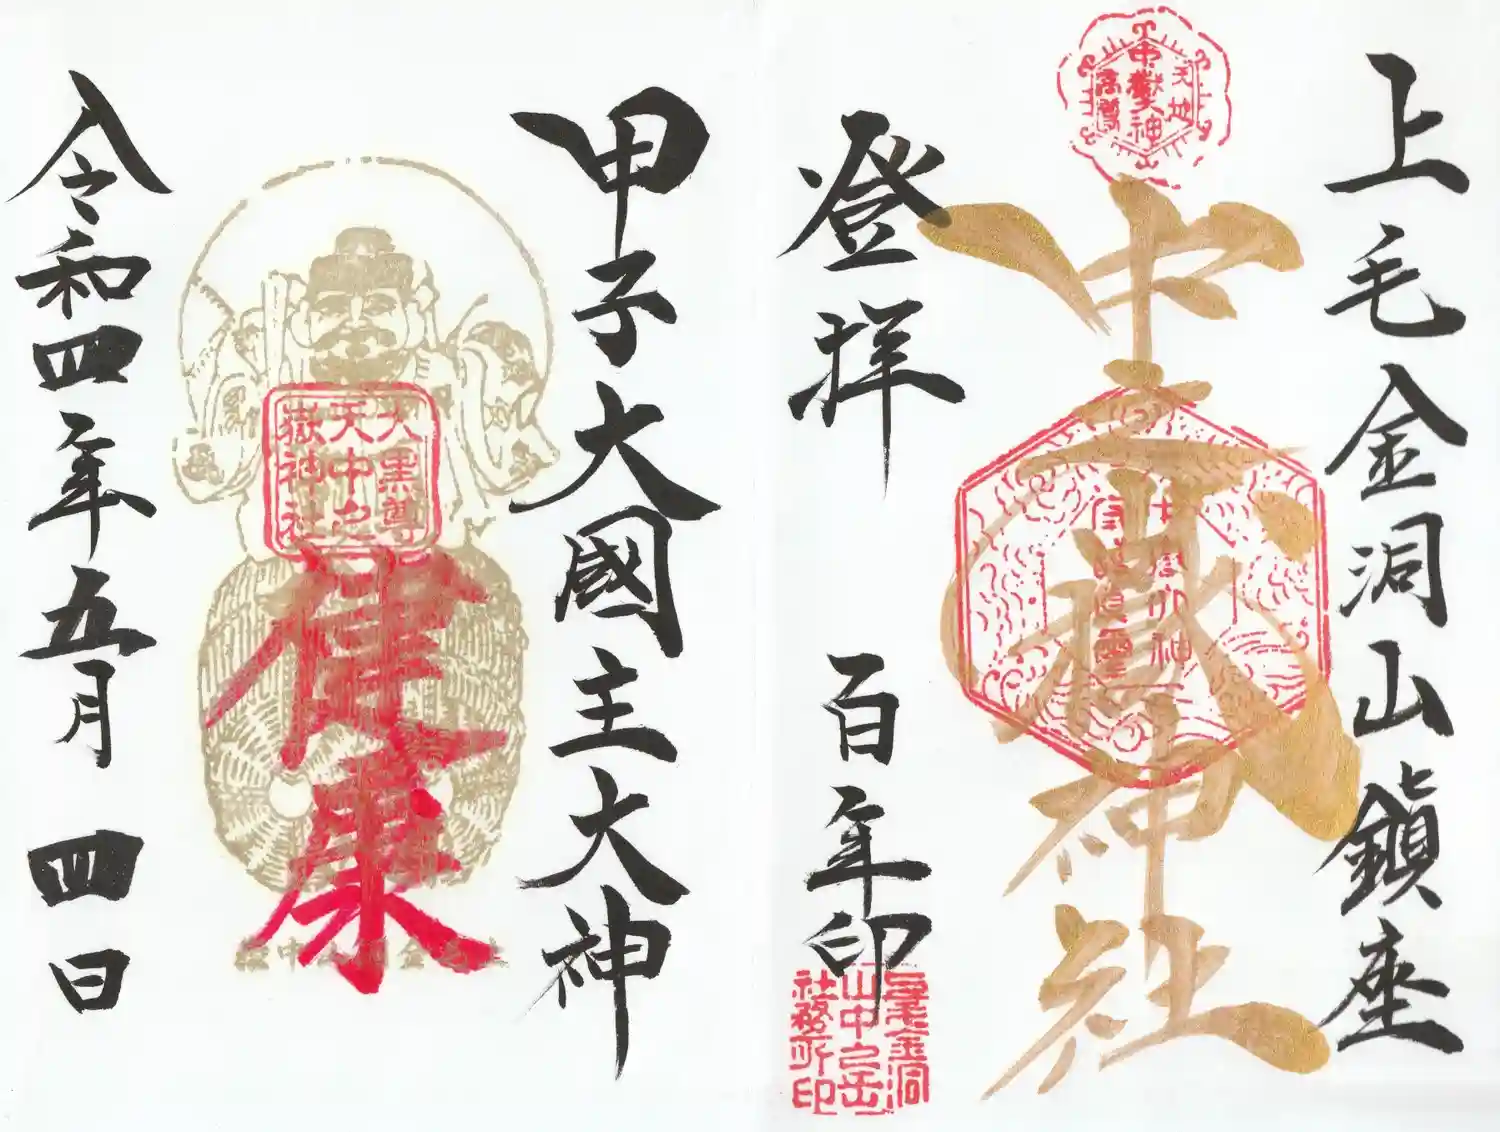 上毛金洞山鎮座
中之嶽神社
天地
中嶽大神
登拝
百年印
上毛金洞
山中之岳
社務所印
甲子大國主大神
大黒尊
天中之
嶽神社
健康
令和四年五月四日